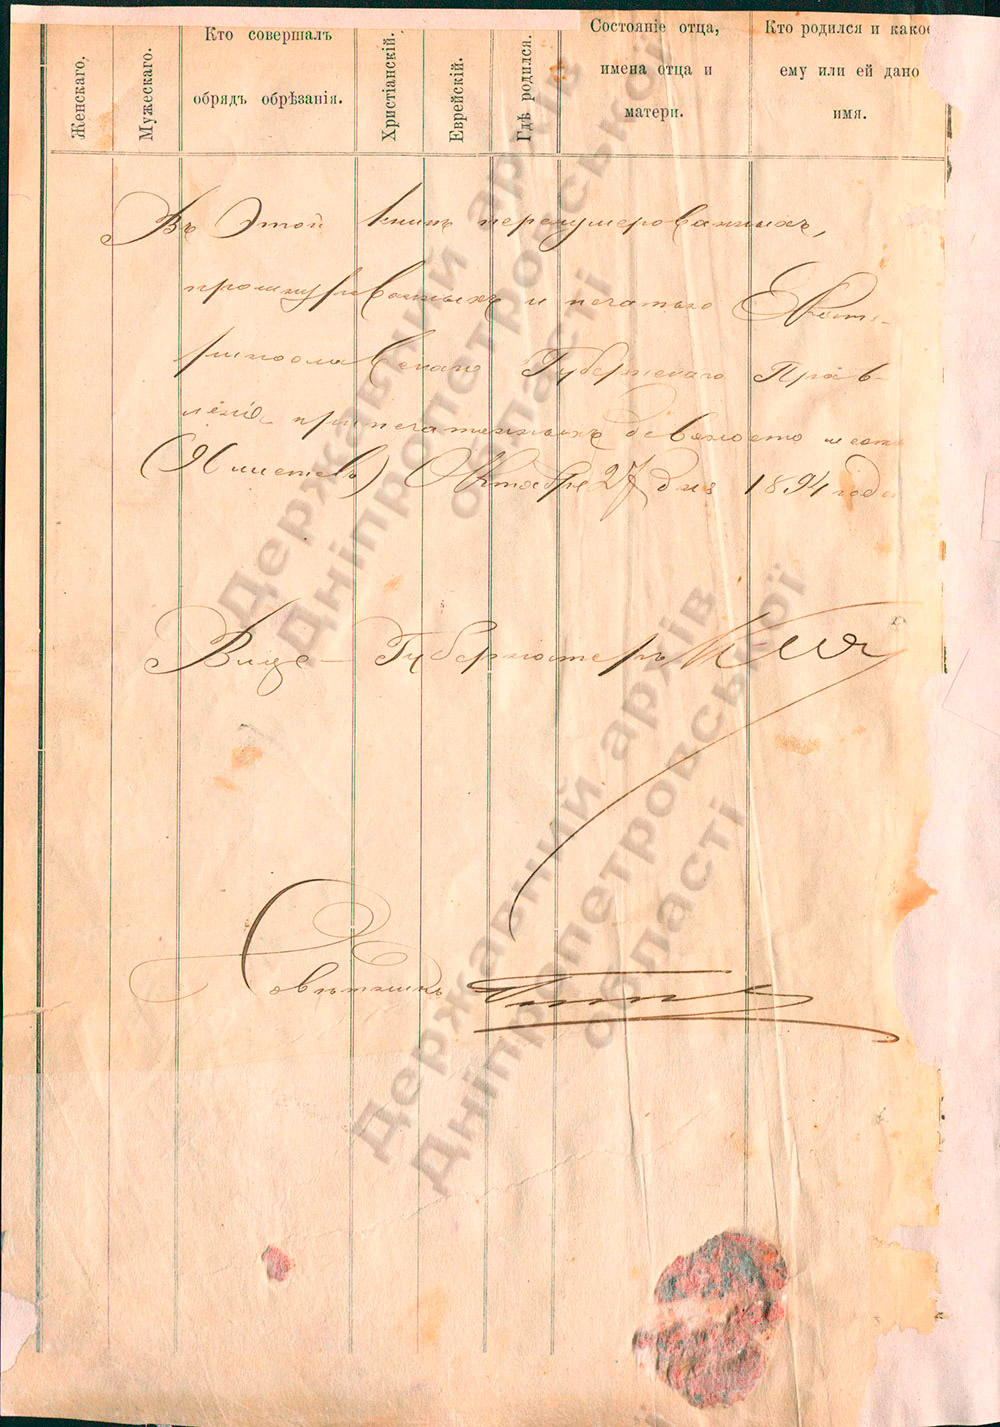 Женскаго.
Мужескаго.
Кто совершалъ
обрядъ обрѣзанія.
Христіанскій.
Еврейскій.
Гдѣ родился.
Состояніе отца,
имена отца и
матери.
Кто родился и како
ему или ей дано
имя.
Въ этой книгѣ перенумерованныхъ,
прошнурованныхъ и печатью Екате-
ринославскаго Губернскаго Прав-
ленія припечатанныхъ девяносто
листовъ) Октября 27 дня 1894 года
Вице-Губернаторъ
Совѣтникъ
Державний архів
Дніпропетровської
області
Державний архів
Дніпропетровської
області